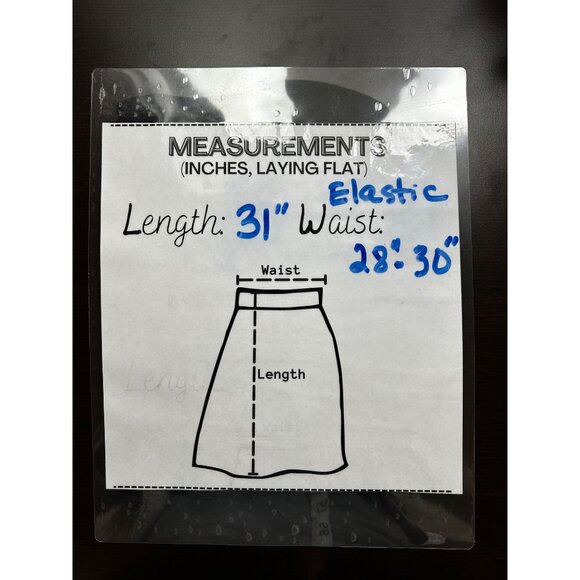 MEASUREMENTS
(INCHES, LAYING FLAT)
Elastic
Length: 31" Waist:
28"- 30"
Waist
Length